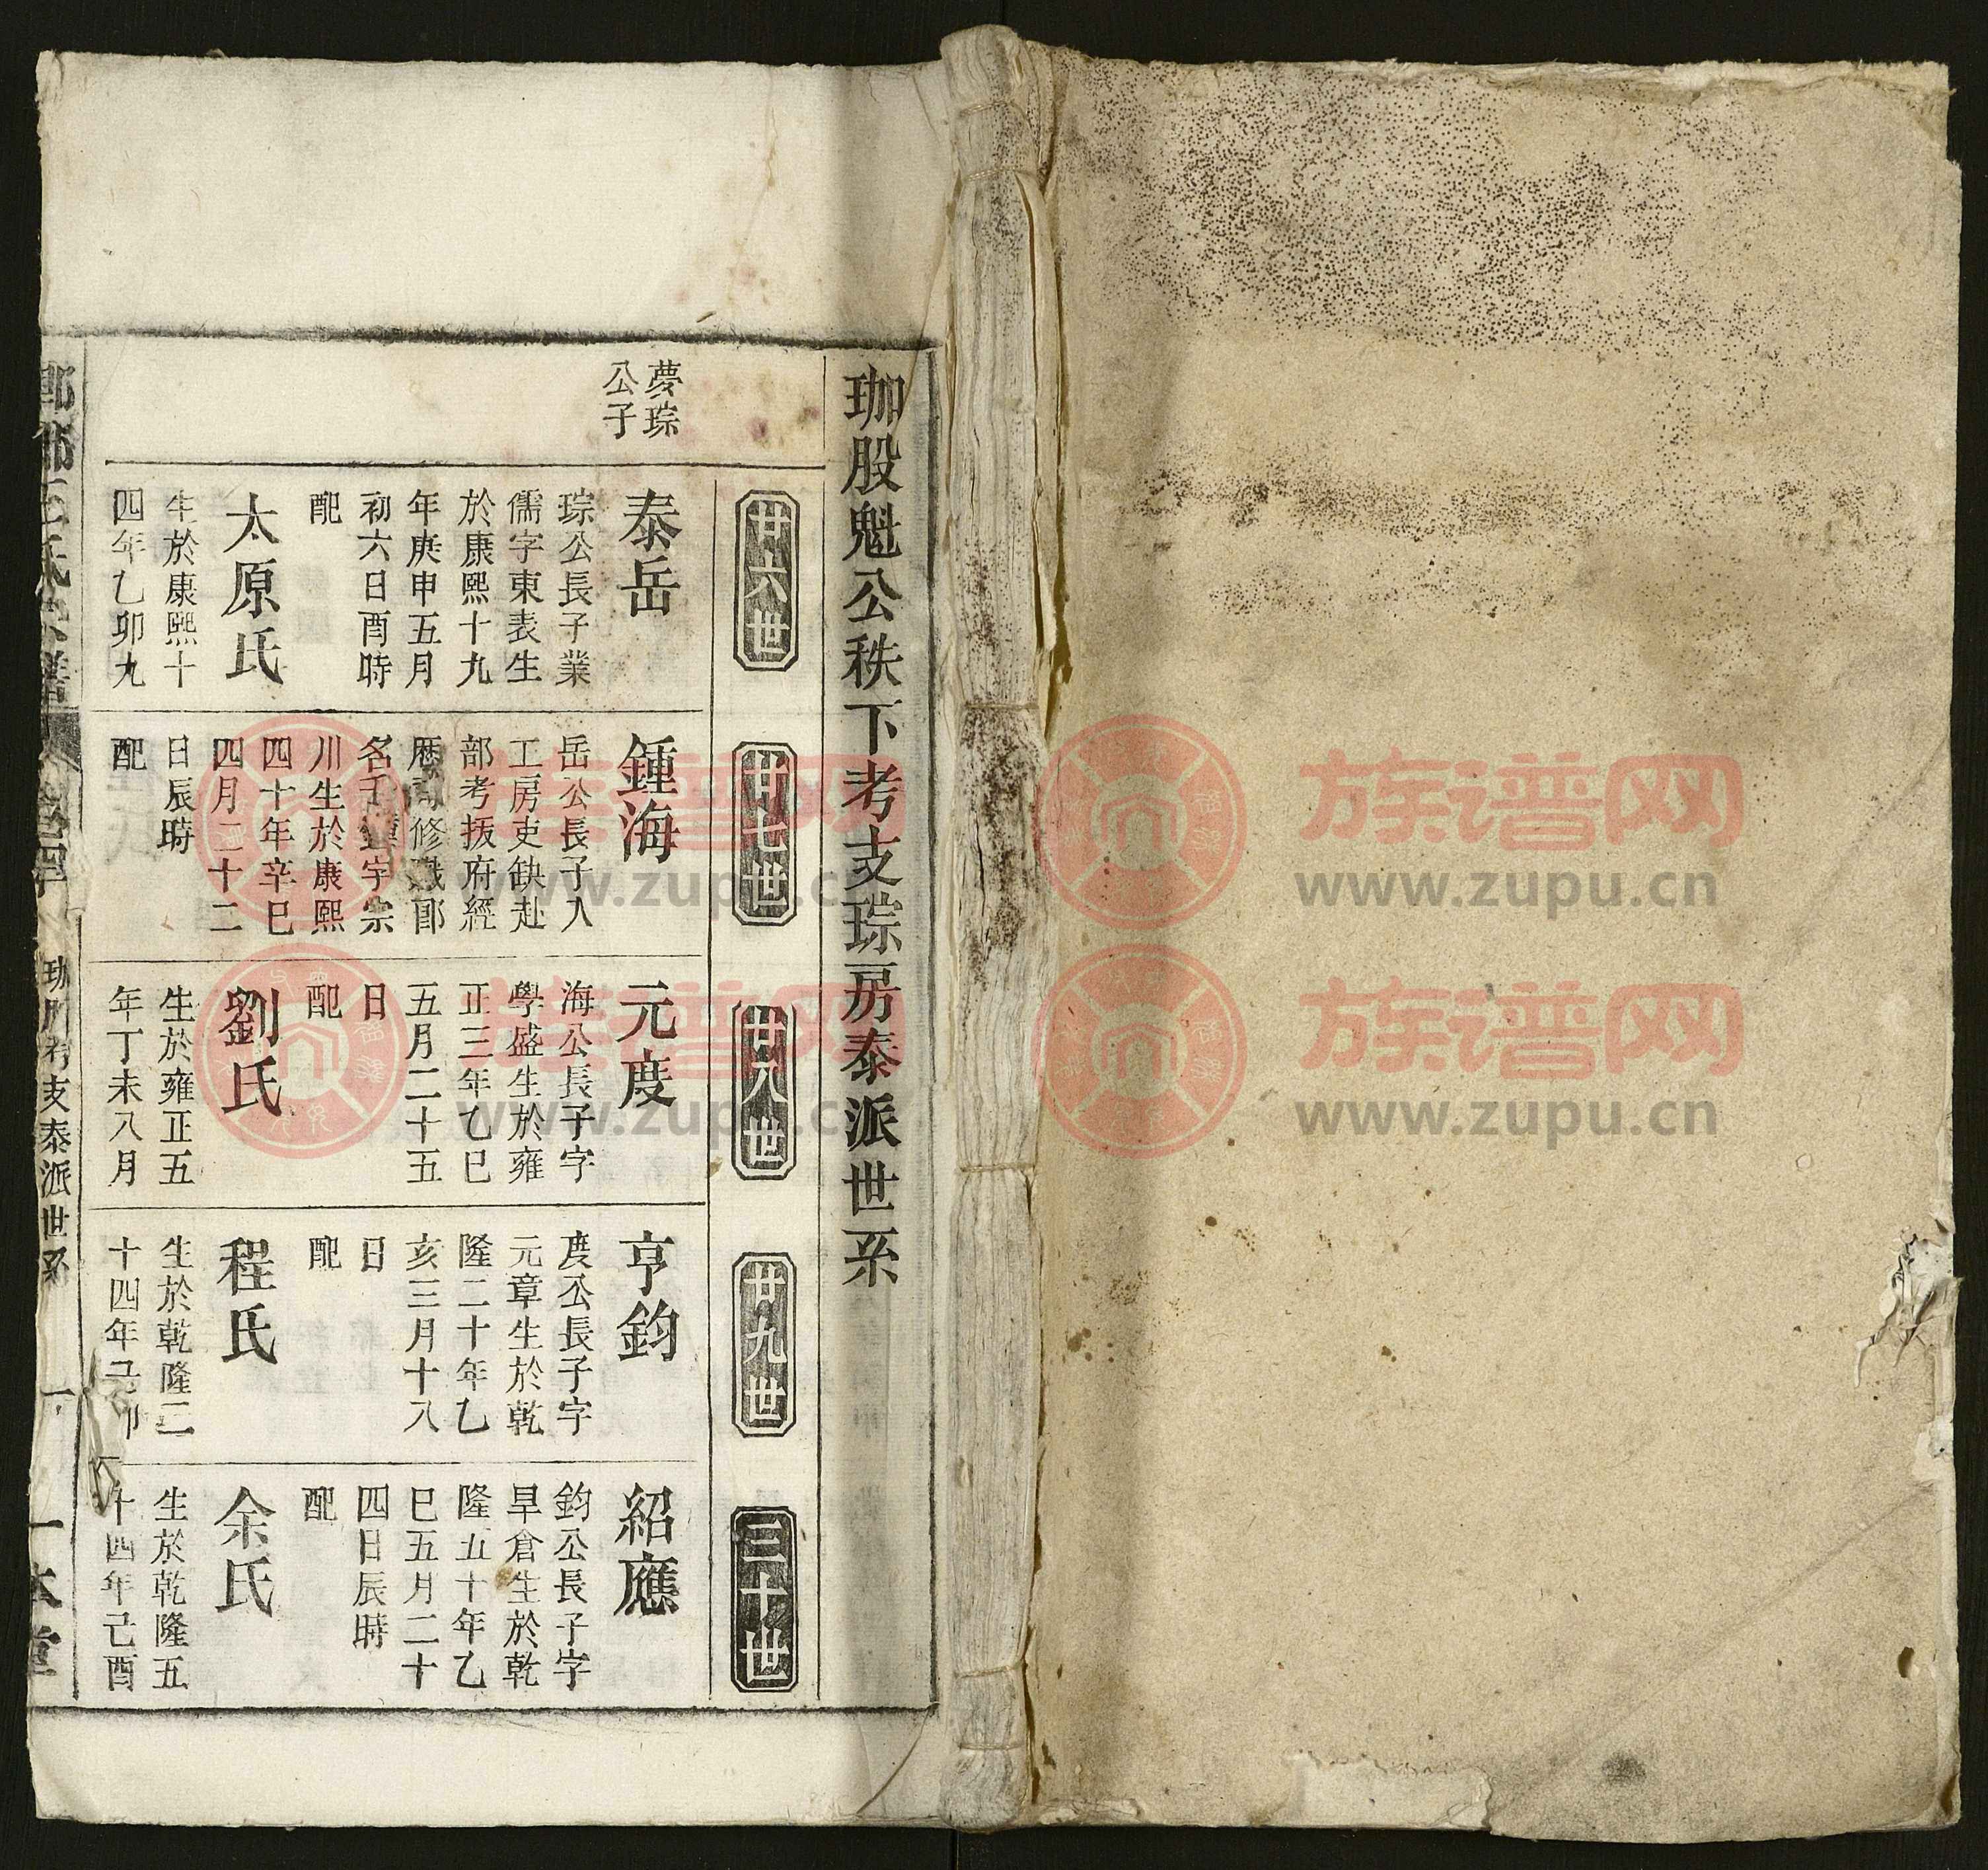 珈股魁公秩下考支琮房泰派世系
廿六世
廿七世
廿八世
廿九世
三十世
夢琮
公子
泰岳
琮公長子業
儒字東表生
於康熙十九
年庚申五月
初六日酉時
配
太原氏
生於康熙十
四年乙卯九
鍾海
岳公長子入
工房吏缺赴
部考拔府經
川生於康熙
四十年辛巳
四月二十二
日辰時
配
元度
海公長子字
學盛生於雍
正三年乙巳
五月二十五
日
配
劉氏
生於雍正五
年丁未八月
亨鈞
度公長子字
元章生於乾
隆二十年乙
亥三月十八
日
配
程氏
生於乾隆二
十四年己卯
紹應
鈞公長子字
旱倉生於乾
隆五十年乙
巳五月二十
四日辰時
配
余氏
生於乾隆五
十四年己酉
支泰派世系
一本堂
族谱网
www.zupu.cn
族谱网
www.zupu.cn
族谱网
www.zupu.cn
族谱网
www.zupu.cn